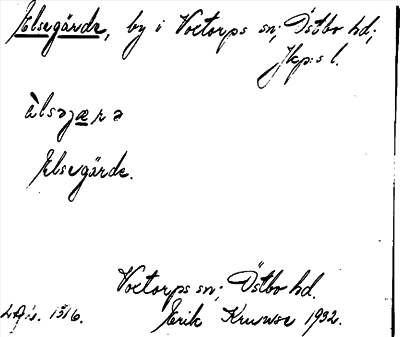 Elsegärde, by i Voxtorps sn; Östbo hd;
Jkp:s l.
èlsəjæra
Elsegärde.
Voxtorps sn; Östbo hd.
Erik Kruuse 1932.